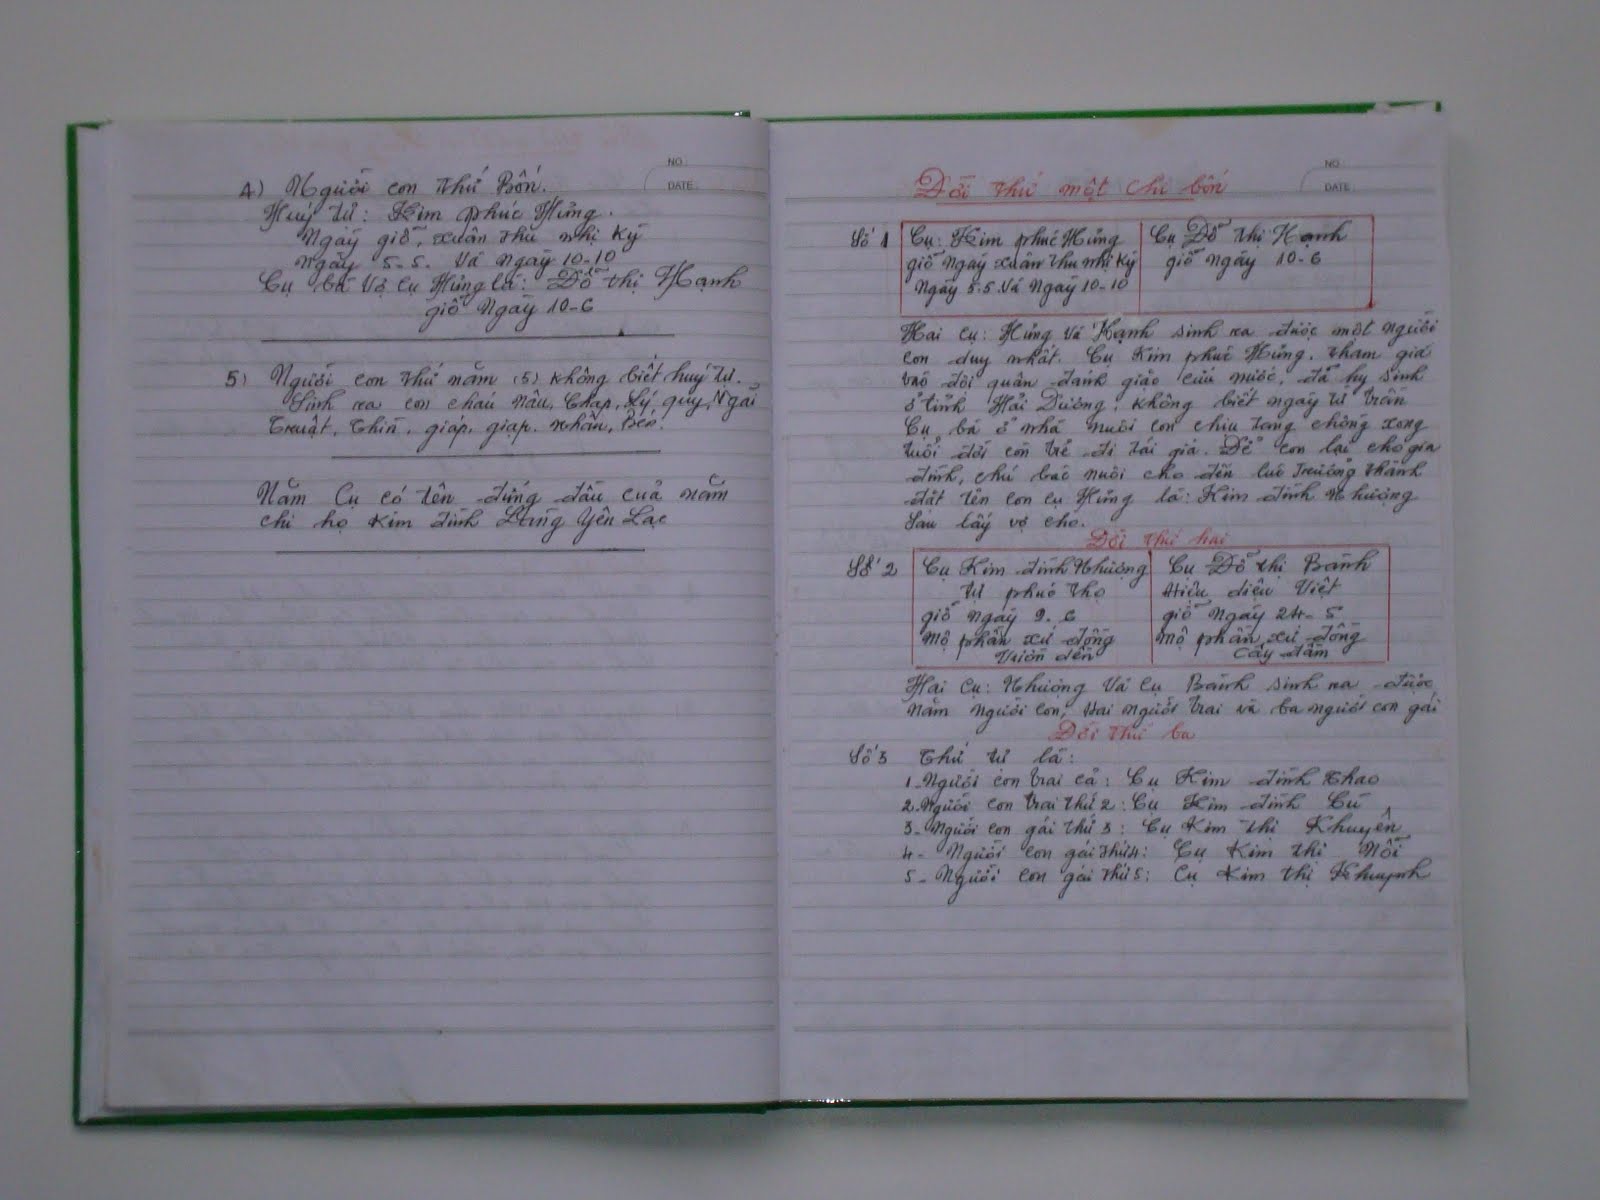 NO :
DATE :
4) Người con thứ Bốn.
Huý tự : Kim phúc Hưởng.
Ngày giỗ, xuân thu nhị kỳ
Ngày 5-5. Và ngày 10-10
Cụ bà Vợ Cụ Hưởng là : Đỗ thị Hạnh
giỗ Ngày 10-6
5) Người con thứ năm (5) không biết huý tự.
Sinh ra con cháu Nâu, Chap, Lý, quy, Ngãi
Truật, Thìn, giap, giạp. Nhân,
Năm Cụ có tên đứng đầu của năm
chi họ Kim đình Làng Yên Lạc
NO :
DATE :
Đời thứ một chi bốn
Số 1
Cụ : Kim phúc Hưởng
giỗ ngày xuân thu nhị kỳ
Ngày 5.5. Và Ngày 10-10
Cụ Đỗ thị Hạnh
giỗ ngày 10-6
Hai Cụ : Hưởng Và Hạnh sinh ra được một người
con duy nhất. Cụ Kim phúc Hưởng. tham gia
vào đội quân đánh giặc cứu nước, đã hy sinh
ở tỉnh Hải Dương, không biết ngày tử trần
Cụ bà ở nhà nuôi con chịu tang chồng xong
tuổi đời còn trẻ đi tái giá. Để con lại cho gia
đình, chú bác nuôi cho đến lúc trưởng thành
đặt tên con cụ Hưởng là : Kim đình Nhượng
Sau lấy vợ cho.
Đời thứ hai
Số 2
Cụ Kim đình Nhượng
tự phúc thọ
giỗ ngày 9. 6
mộ phần xứ đồng
Vườn dền
Cụ Đỗ thị Bành
Hiệu diệu Việt
giỗ Ngày 24- 5
mộ phần xứ đồng
Cây đầm
Hai Cụ : Nhượng Và Cụ Bành sinh ra được
năm người con, Hai người trai và ba người con gái
Đời thứ ba
Số 3 Thứ tự là :
1- Người con trai cả : Cụ Kim đình Thao
2- Người con trai thứ 2 : Cụ Kim đình Cừ
3- Người con gái thứ 3 : Cụ Kim thị Khuyên
4- Người con gái thứ 4 : Cụ Kim thị Nối
5- Người con gái thứ 5 : Cụ Kim thị Khuỳnh